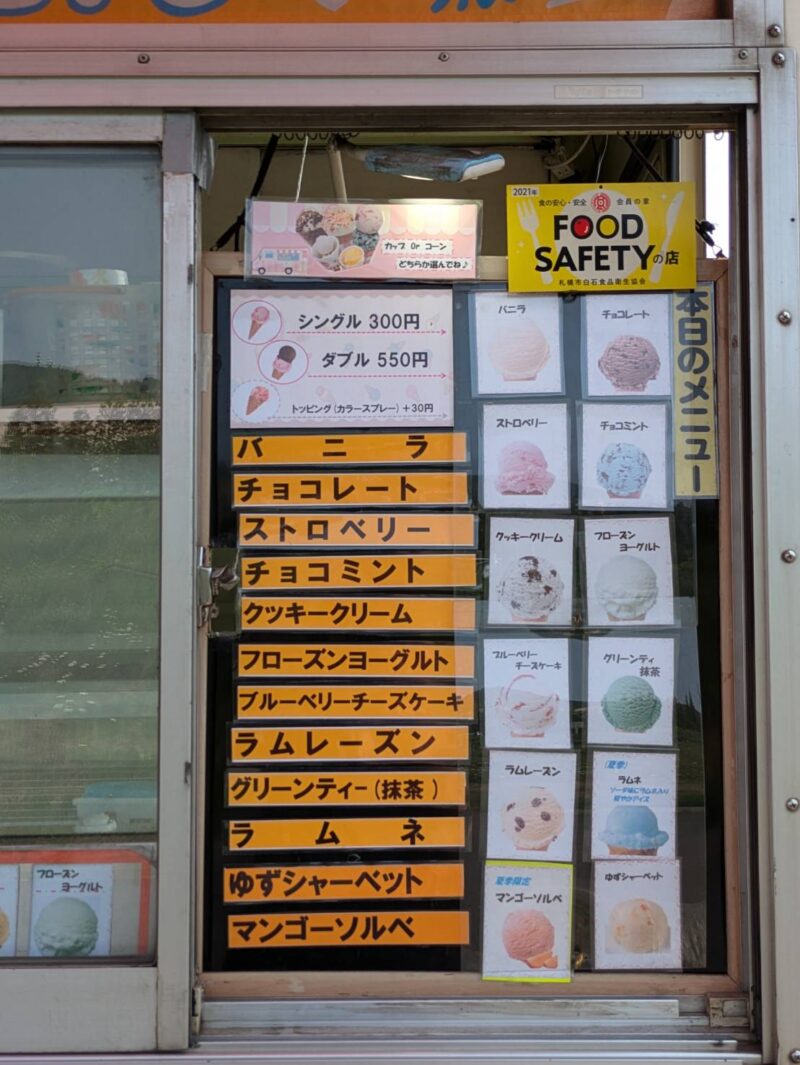 2021年
食の安心・安全 会員の章
FOOD
SAFETYの店
札幌市白石食品衛生協会
カップ Or コーン
どちらか選んでね♪
シングル 300円
ダブル 550円
トッピング(カラースプレー)+30円
本日のメニュー
バニラ
チョコレート
ストロベリー
チョコミント
クッキークリーム
フローズンヨーグルト
ブルーベリーチーズケーキ
ラムレーズン
グリーンティー(抹茶)
ラムネ
ゆずシャーベット
マンゴーソルベ
バニラ
チョコレート
ストロベリー
チョコミント
クッキークリーム
フローズン
ヨーグルト
ブルーベリー
チーズケーキ
グリーンティ
抹茶
ラムレーズン
(夏季)
ラムネ
ソーダ味にラムネ入り
爽やかアイス
夏季限定
マンゴーソルベ
ゆずシャーベット
フローズン
ヨーグルト